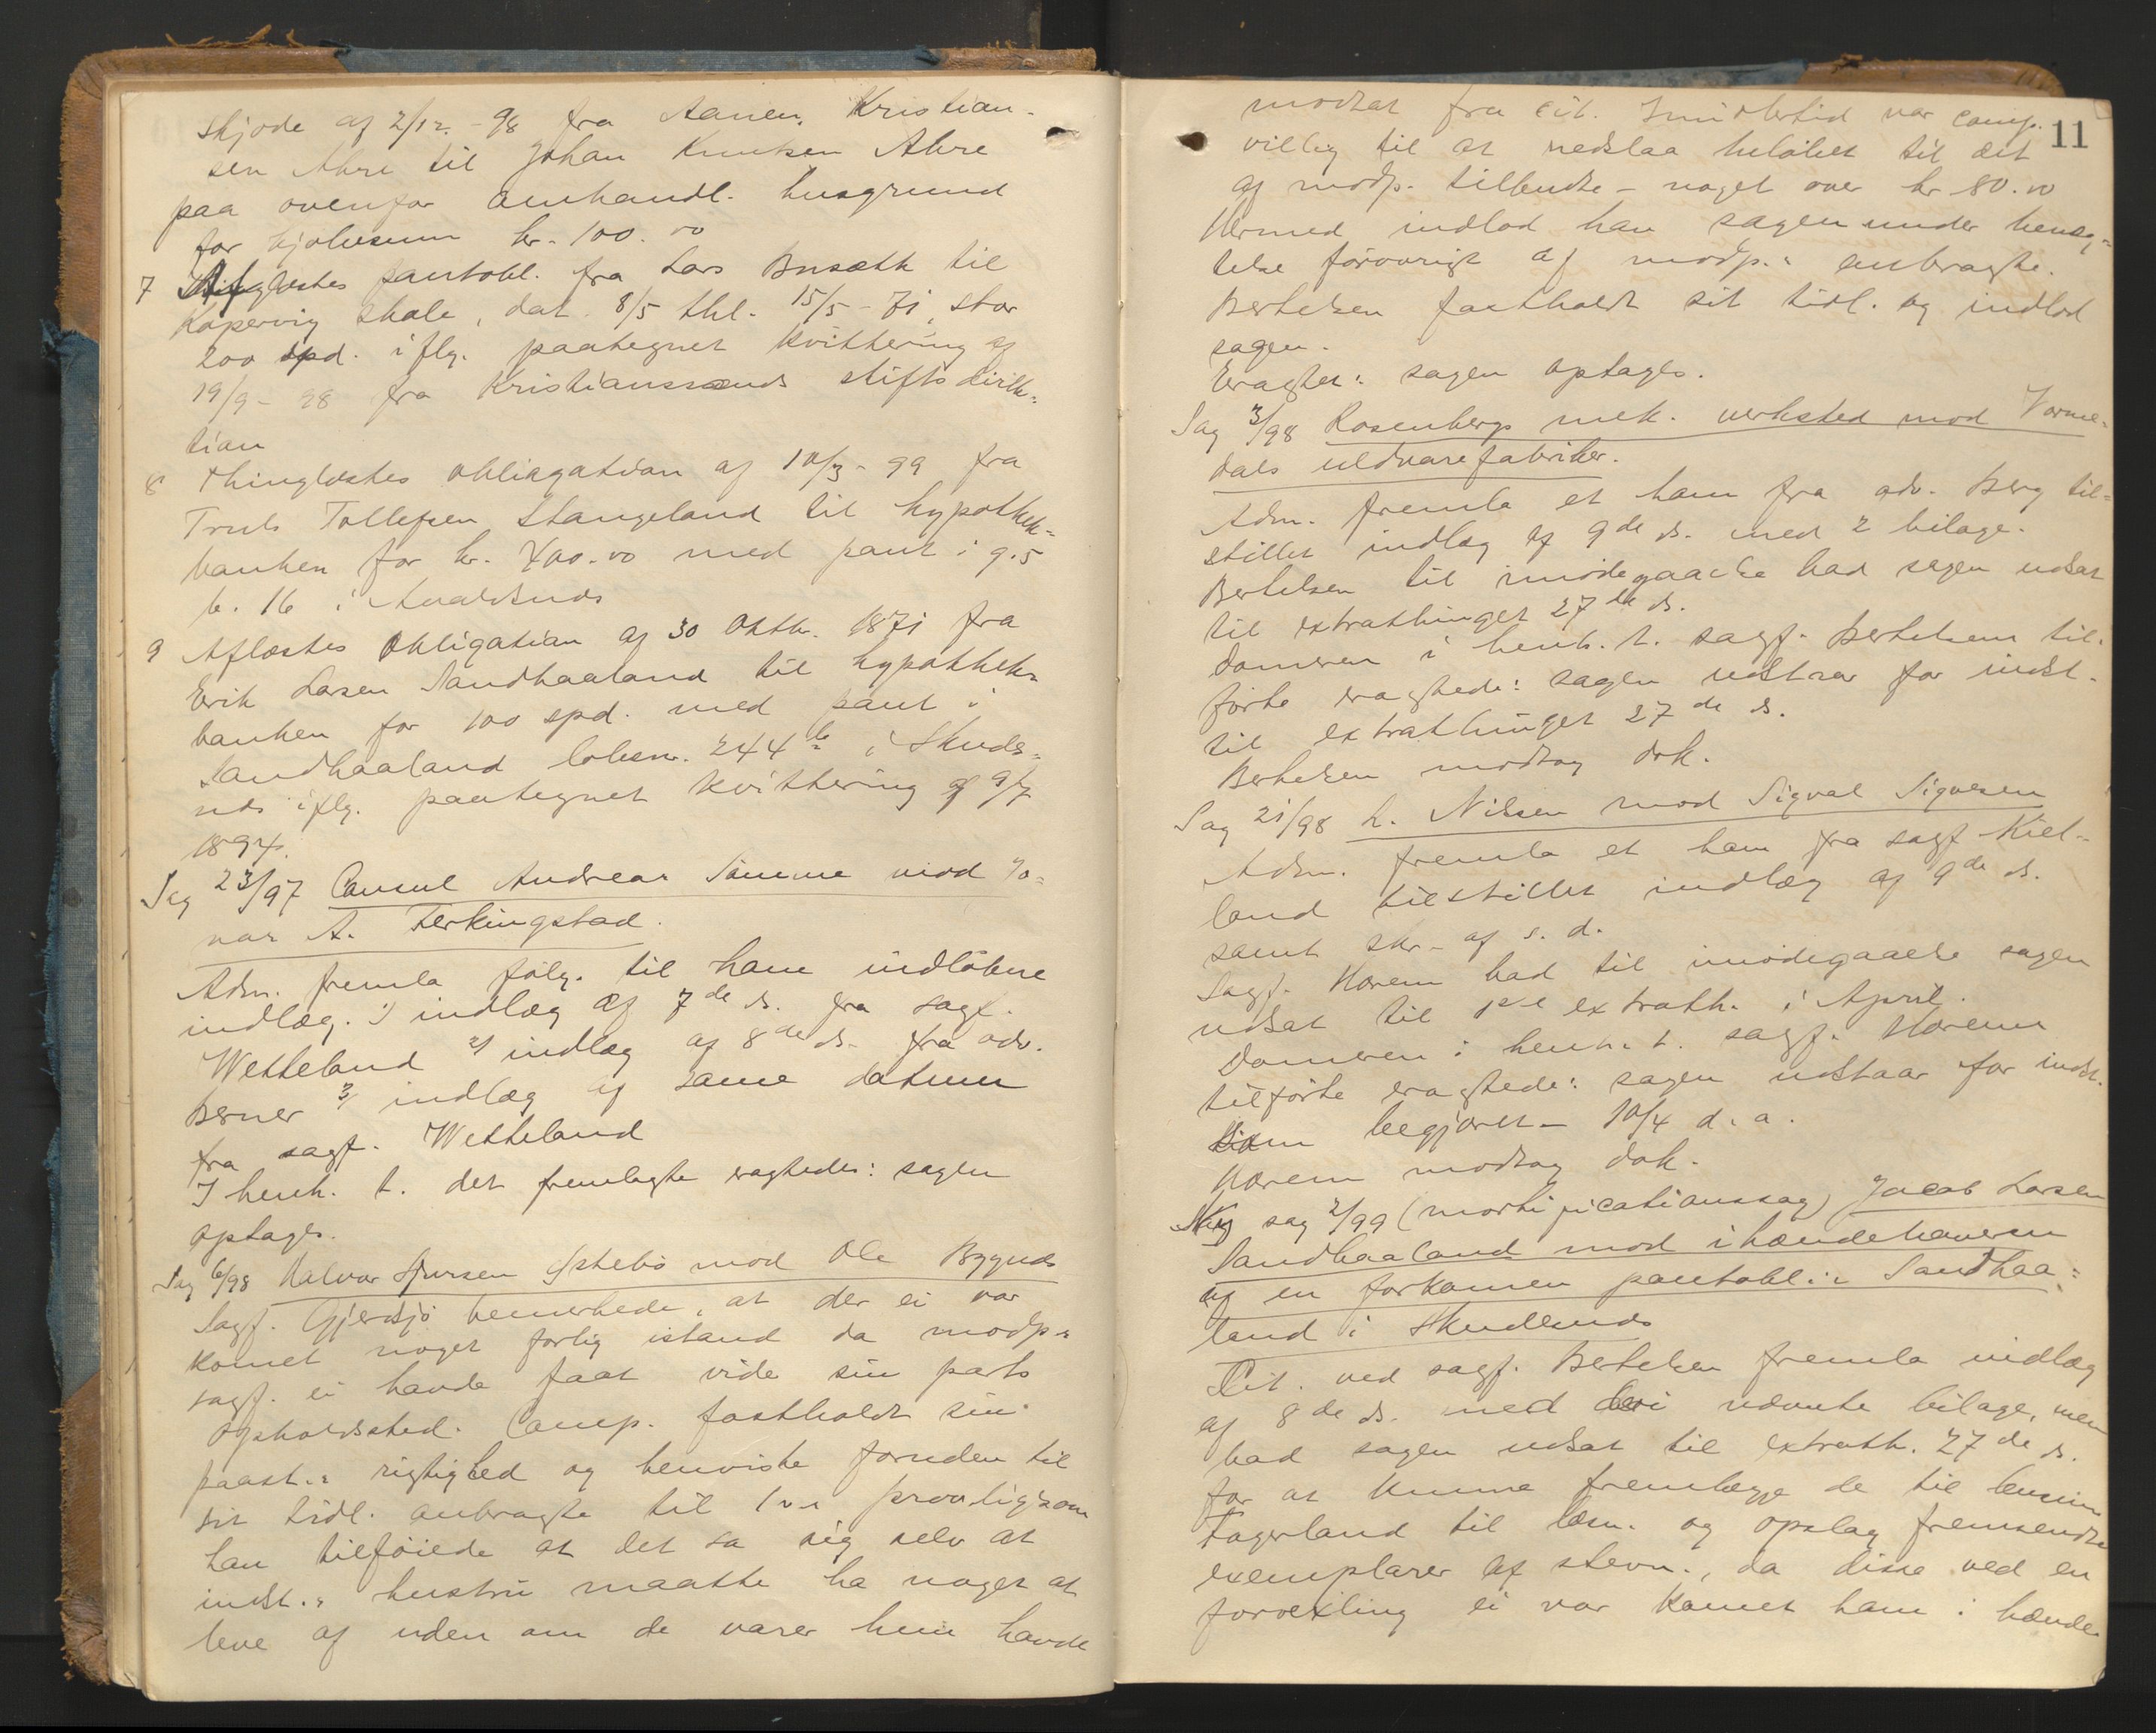 skjøde af 2/12.-98 fra Aanen Kristian-
sen Ahre til Johan Knutsen Ahre
paa ovenfor omhandl. husgrund
for kjøbesum kr. 100.00
7 Aflæstes pantobl. fra Lars Busæth til
Kopervig skole, dat. 8/5 thl. 15/5-71, stor
200 spd. iflg. paategnet kvittering af
19/9-98 fra Kristianssands stiftsdirek-
tion
8 Thinglæstes obligation af 10/3-99 fra
Truls Tollefsen Stangeland til hypothek-
banken for kr. 400.00 med pant i g.5
b. 16 i Avaldsnds
9 Aflæstes obligation af 30 Oktbr. 1871 fra
Erik Larsen Sandhaaland til hypotheks-
banken for 100 spd. med pant i
Sandhaaland løbenr. 244 b i Skudes-
nds iflg. paategnet kvittering af 9/7
1894.
Sag 23/97 Consul Andreas Sømme mod Jo-
nas A. Ferkingstad.
Adm. fremla følg. til ham indløbne
indlæg. 1) indlæg af 7de ds. fra sagf.
Wetteland 2) indlæg af 8de ds. fra adv.
Berner 3) indlæg af same datum
fra sagf. Wetteland
I henh. t. det fremlagte eragtedes: sagen
optages.
Sag 6/98 Halvor Sjursen Østebø mod Ole Bygnds
Sagf. Gjerdsjø bemerkede, at der ei var
komet noget forlig istand da modp.s
sagf. ei havde faat vide sin parts
opholdssted. Comp. fastholdt sin
paast.s rigtighed og henviste foruden til
sit tidl. anbragte til
han tilføiede at det sa sig selv at
indst.s hustru maatte ha noget at
leve af uden om de varer hun havde
11
modtat fra cit. Imidlertid var comp.
villig til at nedslaa beløbet til det
af modp. tilbudte - noget over kr 80.00
Hermed indlod han sagen under benæg-
telse forøvrigt af modp.s anbragte.
Bertelsen fastholdt sit tidl. og indlod
sagen.
Eragtet: sagen optages.
Sag 3/98 Rosenbergs mek. verksted mod Vorme-
dals uldvarefabriker.
Adm. fremla et ham fra adv. Berg til-
stillet indlæg af 9de ds. med 2 bilage.
Bertelsen til imødegaaelse bad sagen udsat
til extrathinget 27de ds.
Domeren i henh. t. sagf. Bertelsens til-
førte eragtede: sagen udstaar for indst.
til extrathinget 27de ds.
Bertelsen modtog dok.
Sag 21/98 L. Nilsen mod Sigval Sigvesen
Adm. fremla et ham fra sagf. Kiel-
land tilstillet indlæg af 9de ds.
samt skr. af s. d.
Sagf. Hørem bad til imødegaaelse sagen
udsat til 1ste extrath. i April.
Domeren i henh. t. sagf. Hørems
tilførte eragtede: sagen udstaar for indst.
som begjæret - 10/4 d. a.
Hørem modtog dok.
Ny sag 2/99 (mortificationssag) Jacob Larsen
Sandhaaland mod ihændehaveren
af en forkomen pantobl. i Sandhaa-
land i Skudesnds
Cit. ved sagf. Bertelsen fremla indlæg
af 8de ds. med deri nævnte bilage, men
bad sagen udsat til extrath. 27de ds.
for at kunne fremlægge de til
Fagerland til læsn. og opslag fremsendte
exemplarer af stevn., da disse ved en
forvexling ei var komet ham i hænde